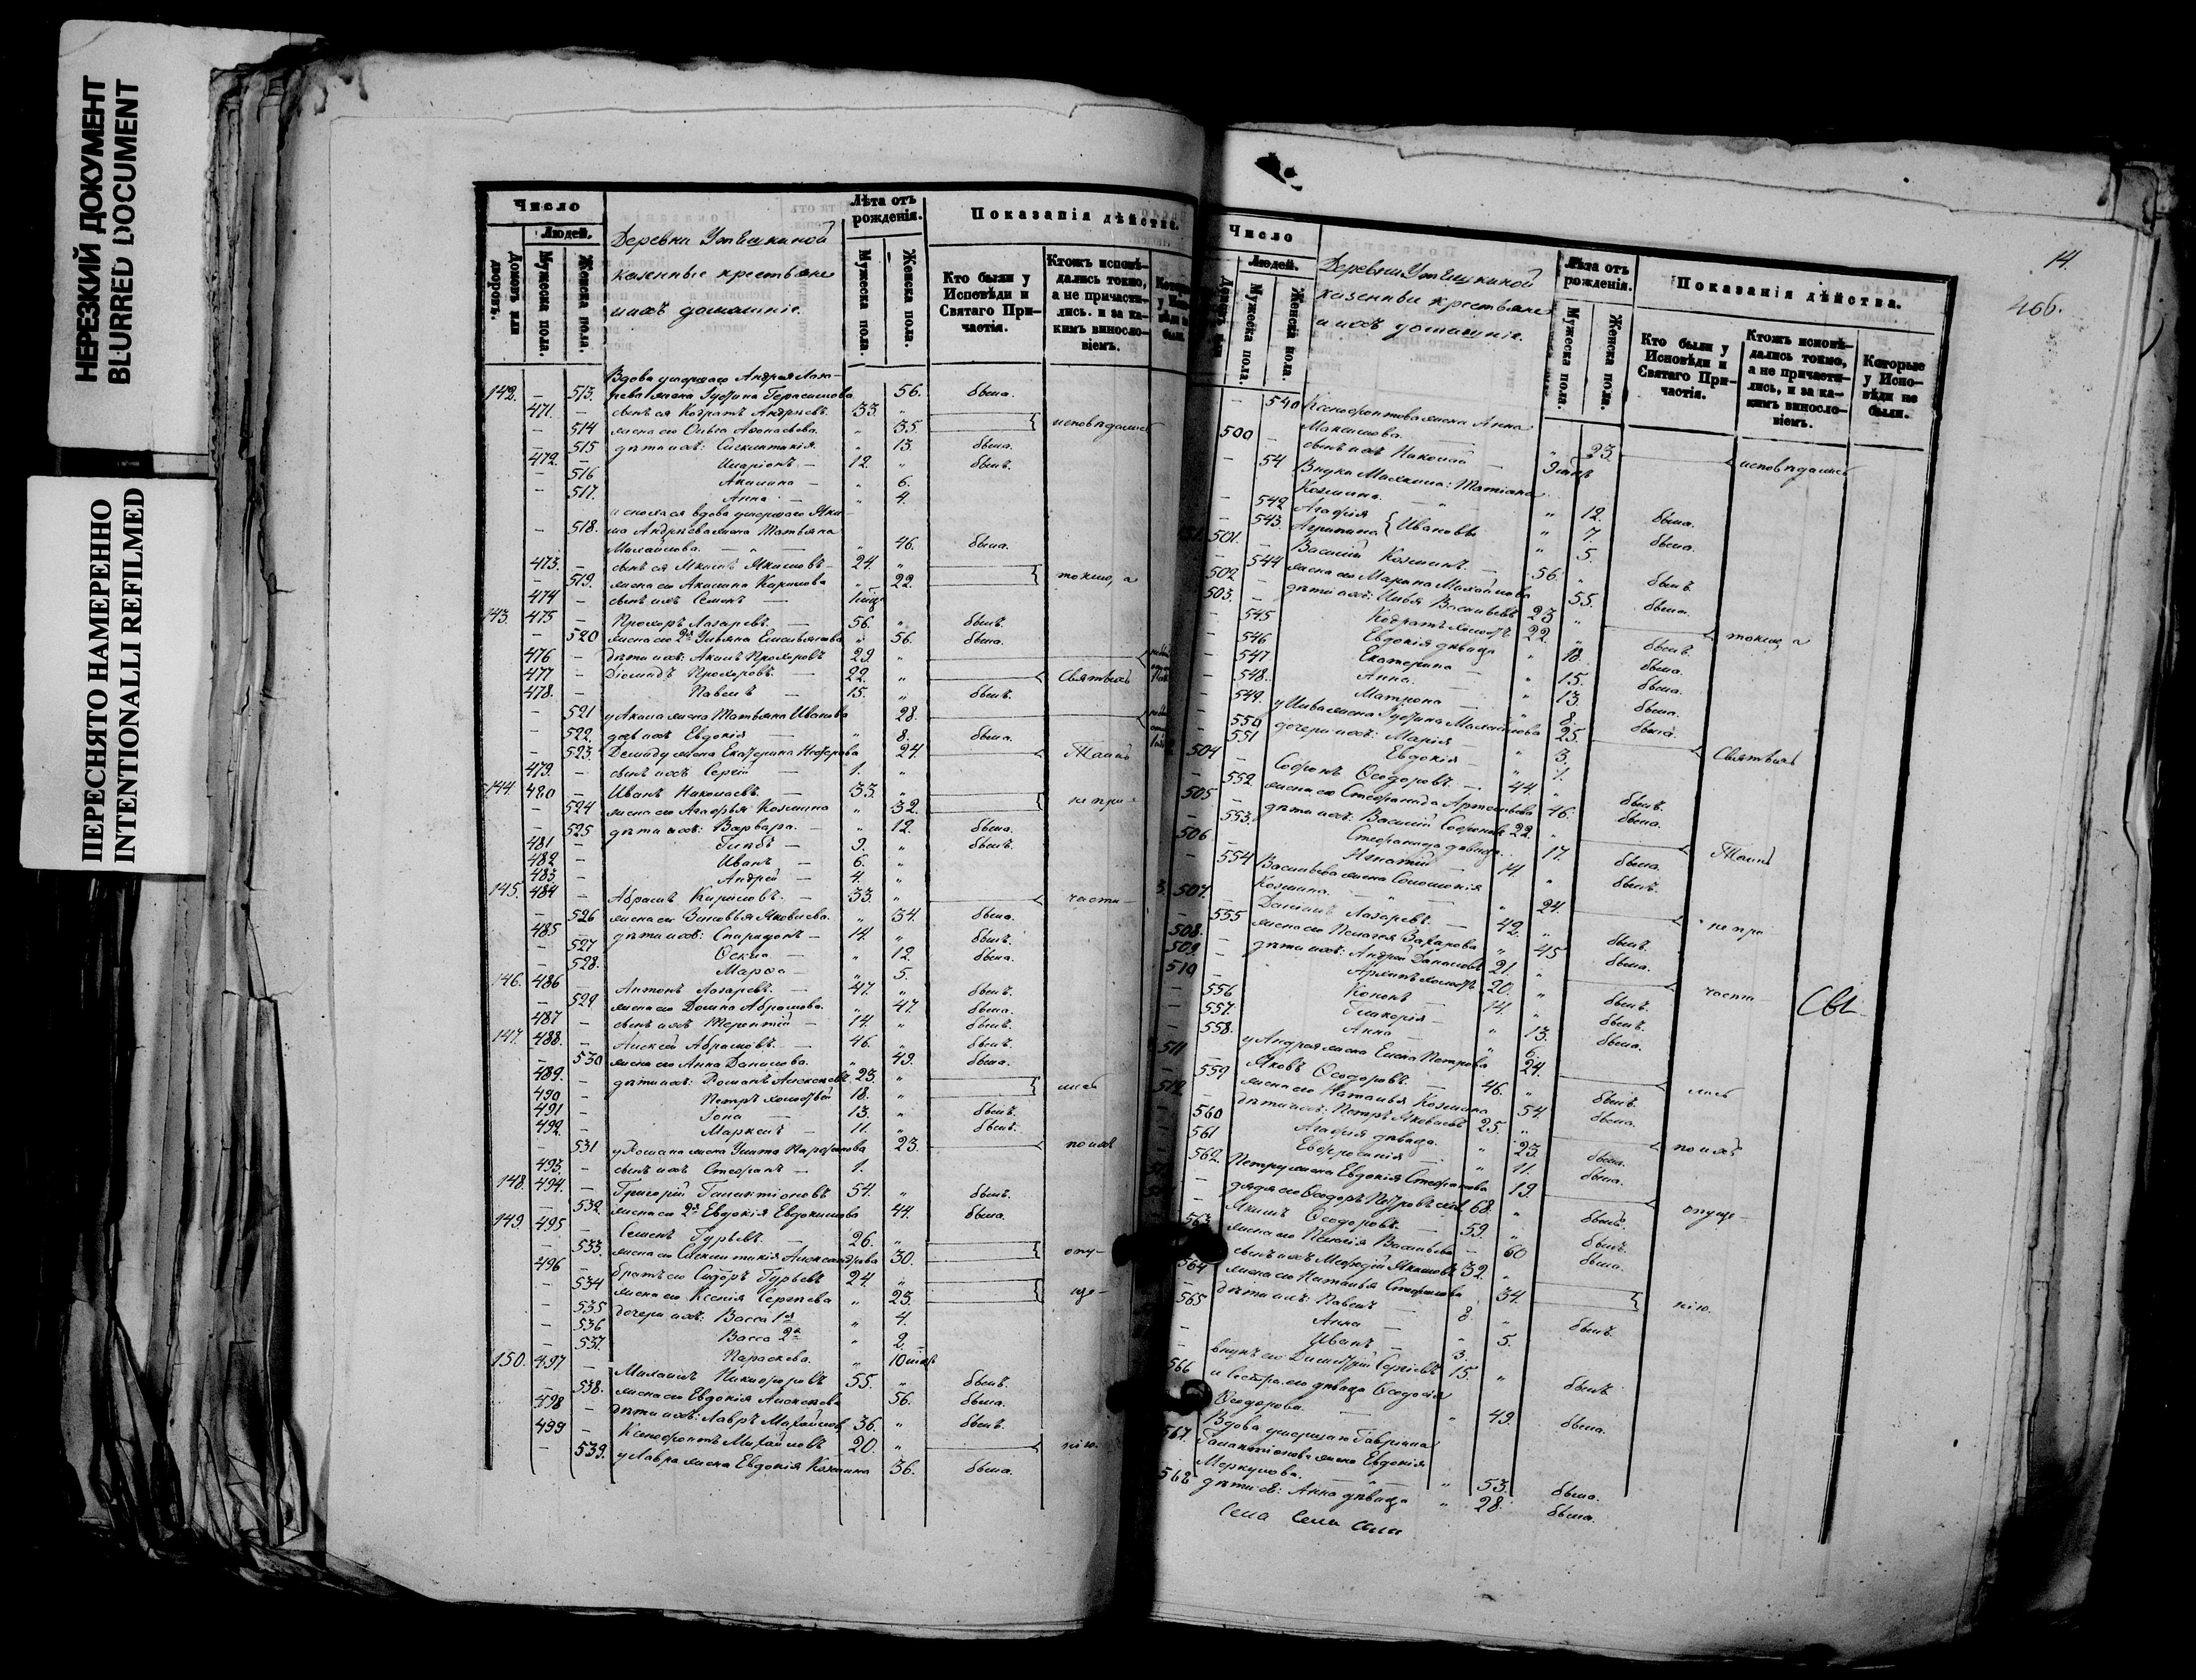 НЕРЕЗКИЙ ДОКУМЕНТ
BLURRED DOCUMENT
ПЕРЕСНЯТО НАМЕРЕННО
INTENTIONALLI REFILMED
Число
Людей.
Домовъ или дворовъ.
Мужеска пола.
Женска пола.
Деревни Утѣшкиной
казенные крестьяне
и ихъ домашніе.
Лѣта отъ рожденія.
Мужеска пола.
Женска пола.
Показанія дѣйства.
Кто были у Исповѣди и Святаго Причастія.
Ктожъ исповѣдались токмо, а не причастились. и за какимъ винословіемъ.
Вдова умершаго Андрея Лаза-
142. — 513. рева жена Іустина Герасимова 56. была.
471. — сынъ ея Кодратъ Андреевъ 33. „
— 514 жена его Ольга Аѳонасьева „ 35 исповѣдались
— 515 дѣти ихъ: Синклитикія „ 13. была.
472. — Иларіонъ — 12. „ былъ.
— 516 Акилина — „ 6.
— 517. Анна — „ 4.
и сноха ея вдова умершаго Яки-
— 518. ма Андреева жена Татьяна
Михайлова. — „ 46. была.
473. — сынъ ея Якимъ Якимовъ — 24. „
— 519. жена его Акилина Карпова 22. токмо, а
474 — сынъ ихъ Семенъ —
143. 475 — Прохоръ Лазаревъ. — 56. „ былъ.
— 520 жена его 2я Ульяна Емельянова „ 56. была.
476 — дѣти ихъ: Акимъ Прохоровъ 29 „
477 — Діомидъ Прохоровъ. — 22. „ Святыхъ
478. — Павелъ — 15. „ былъ.
— 521 у Акима жена Татьяна Иванова 28.
— 522. дочь ихъ Евдокія — „ 8. была.
— 523. Демиду жена Екатерина 24. Таинъ
479. — сынъ ихъ Сергій — 1. „
144. 480 — Иванъ Николаевъ. — 33. „
— 524 жена его Агафья Козмина „ 32. не при-
— 525 дѣти ихъ: Варвара. — „ 12. была.
481 — Глѣбъ — 9. „ былъ.
482 — Иванъ — 6. „
483. — Андрей — 4. „
145. 484 — Абрамъ Кириловъ. — 33. „ части-
— 526 жена его Зиновья Яковлева. „ 34. была.
485 — дѣти ихъ: Спиридонъ — 14. „ былъ.
— 527 Ѳекла — „ 12. была.
— 528. Марѳа — „ 5.
146. 486 — Антонъ Лазаревъ. — 47. „ былъ.
— 529 жена его Домна Абрамова. „ 47. была.
487 — сынъ ихъ Терентій — 14. „ былъ.
147. 488. — Алексій Абрамовъ. — 46. „ былъ.
— 530 жена его Анна Данилова. „ 49. была.
489. — дѣти ихъ: Романъ Алексѣевъ 23. „
490 — Петръ холостый 18. „ лись
491 — Іона — 13. „ былъ.
492. — Маркелъ — 11. „ былъ.
— 531 у Романа жена Улита Парфенова 23. по ихъ
493. — сынъ ихъ Стефанъ — 1.
148. 494. — Григорій Галактіоновъ 54. „ былъ.
— 532. жена его 2я Евдокія Евдокимова 44. была.
149. 495. — Семенъ Гурьевъ. — 26. „
— 533. жена его Синклитикія Александрова 30. опу-
496 — братъ его Сидоръ Гурьевъ 24. „
— 534 жена его Ксенія Сергеева „ 25. ще-
— 535 дочери ихъ: Васса 1я „ 4.
— 536 Васса 2я „ 2.
— 537. Параскева. „
150. 497 — Михаилъ Никифоровъ 55. „ былъ.
— 538. жена его Евдокія Алексѣева 56. была.
498 — дѣти ихъ: Лавръ Михайловъ 36. „ былъ.
499 — Ксенофонтъ Михайловъ 20. „ нію.
— 539. у Лавра жена Евдокія Козмина 36. была.
14.
466.
Число
Людей.
Мужеска пола.
Женска пола.
Деревни Утѣшкиной
казенные крестьяне
и ихъ домашніе.
Лѣта отъ рожденія.
Мужеска пола.
Женска пола.
Показанія дѣйства.
Кто были у Исповѣди и Святаго Причастія.
Ктожъ исповѣдались токмо, а не причастились, и за какимъ винословіемъ.
Которые у Исповѣди не были.
— 540 Ксенофонтова жена Анна
Максимова. „ 23. исповѣдались
500 — сынъ ихъ Николай —
— 54 Внука Михаила: Татіана
Козмина. „ 12. была.
542 Агафія „ 7. была.
— 543. Агрипина } Ивановы „ 5.
501. — Василій Козминъ. — 56. „ былъ.
544 жена его Марина Михайлова 55. была.
502 — дѣти ихъ: Илья Васильевъ 23 „ токмо, а
503. — Кодратъ холостъ 22. „ былъ.
— 545 Евдокія дѣвица „ 18. была.
— 546 Екатерина „ 15. была.
— 547 Анна. „ 13. была.
— 548. Матрона — „ 8. была.
— 549. у Ильи жена Іустина Михайлова 25. Святыхъ
— 550 дочери ихъ: Марія — „ 3.
— 551 Евдокія — „ 1.
504 — Софонъ Ѳеодоровъ. — 44. „ былъ.
— 552. жена его Стефанида Артемьева 46. была.
505 — дѣти ихъ: Василій Софоновъ 22. „ Таинъ
— 553. Стефанида дѣвица. 17. была.
506 — Игнатій — 14. „ былъ.
— 554 Васильева жена Соломонія
Козмина. — „ 24. не при
507. — Даніилъ Лазаревъ. 42. „ былъ.
— 555 жена его Пелагея Захарова „ 45 была.
508. — дѣти ихъ: Андрей Даниловъ 21. „ части-
509. — Архипъ холостъ 20. „ былъ.
510 — Кононъ — 14. „ былъ.
— 556 Гликерія — „ 13. была.
— 557. Анна — „ 6.
— 558. у Андрея жена Елена Петрова 24. лись
511 — Яковъ Ѳеодоровъ. — 46. „ былъ.
— 559 жена его Наталья Козмина 54. была.
512. — дѣти ихъ: Петръ Яковлевъ 25. „ по ихъ
— 560 Агафія дѣвица. „ 23 была.
— 561 Евфросинія — „ 11. была.
— 562. Петру жена Евдокія Стефанова 19. опуще-
дядя его Ѳеодоръ Петровъ 68. „ былъ.
Якимъ Ѳеодоровъ. — 59. „ былъ.
563 жена его Пелагія Васильева — 60 была.
сынъ ихъ Меѳодій Якимовъ 32. „
564 жена его Наталья Стефанова 34. нію.
дѣти ихъ: Павелъ — 8. „ былъ.
565 Анна — „ 5.
— Иванъ — 3. „
внукъ его Димитрій Сергіевъ 15. „ былъ
566 и сестра его дѣвица Ѳеодосія
Ѳеодорова. — „ 49. была.
Вдова умершаго Гавріила
567. Галактіонова жена Евдокія
Меркулова. — „ 53. была.
568 дѣти ея: Анна дѣвица „ 28. была.